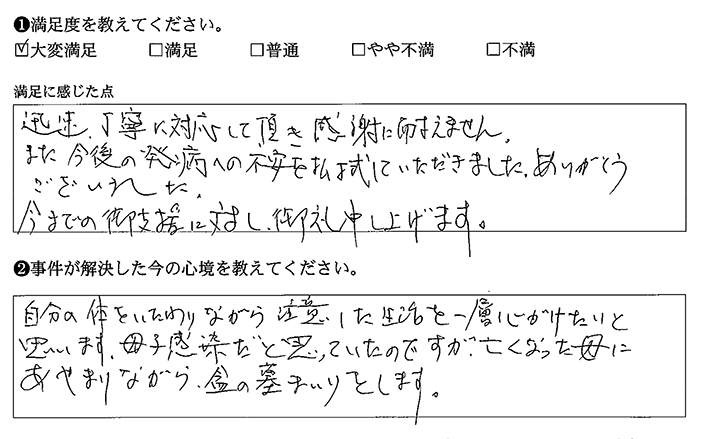 ❶満足度を教えてください。
☑大変満足 □満足 □普通 □やや不満 □不満
満足に感じた点
迅速、丁寧に対応して頂き感謝に耐えません。
また今後の発病への不安を払拭していただきました。ありがとう
ございました。
今までの御支援に対し、御礼申し上げます。
❷事件が解決した今の心境を教えてください。
自分の体をいたわりながら注意した生活を一層心がけたいと
思います。母子感染だと思っていたのですが、亡くなった母に
あやまりながら、盆の墓まいりとします。